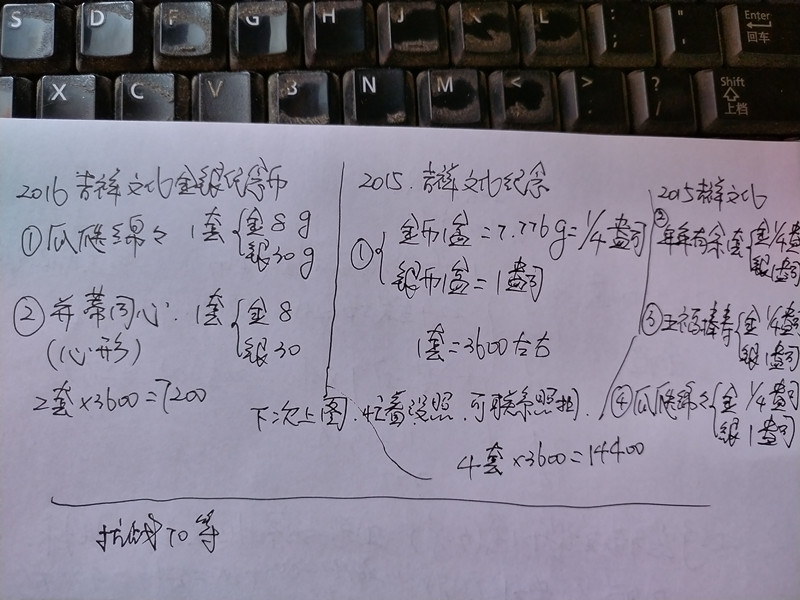 S D F G H J K L : ; " ' Enter 回车
X C V B N M < > ? / Shift 上档
2016吉祥文化金银纪念币
① 瓜瓞绵々 1套 金8g
银30g
② 并蒂同心 1套 金8
(心形) 银30
2套×3600=7200
2015.吉祥文化纪念
① 金币1盎=7.776g=1/4盎司
银币1盎=1盎司
1套=3600左右
2015吉祥文化
② 年年有余1套 金1/4盎
银1盎司
③ 五福捧寿 金1/4盎司
银1盎司
④ 瓜瓞绵々 金1/4盎司
银1盎司
下次上图.忙着没照.可联系照拍.
4套×3600=14400
抗战70等